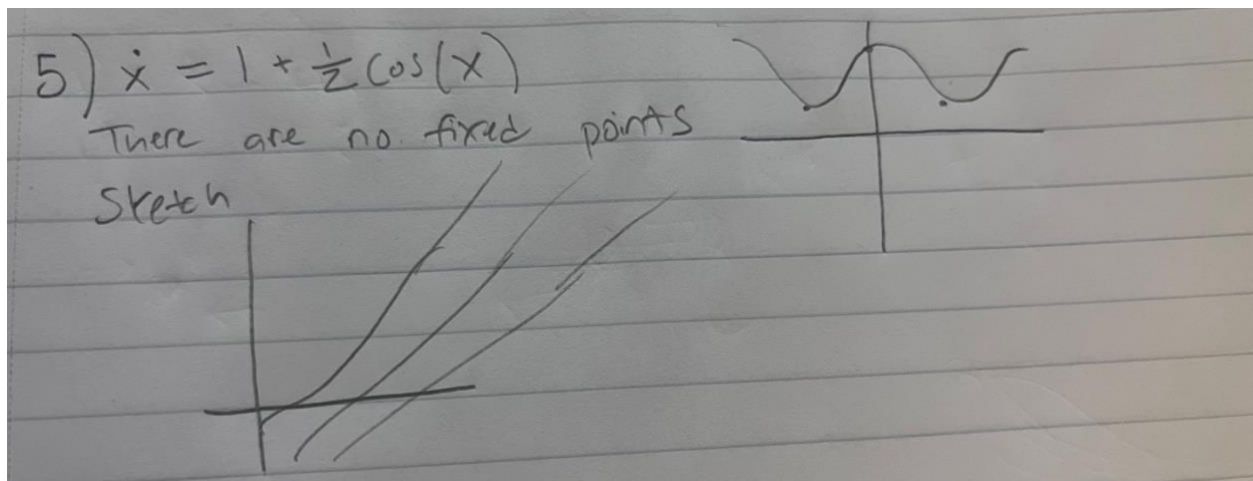 5) ẋ = 1 + 1/2 Cos(x)
There are no fixed points
Sketch